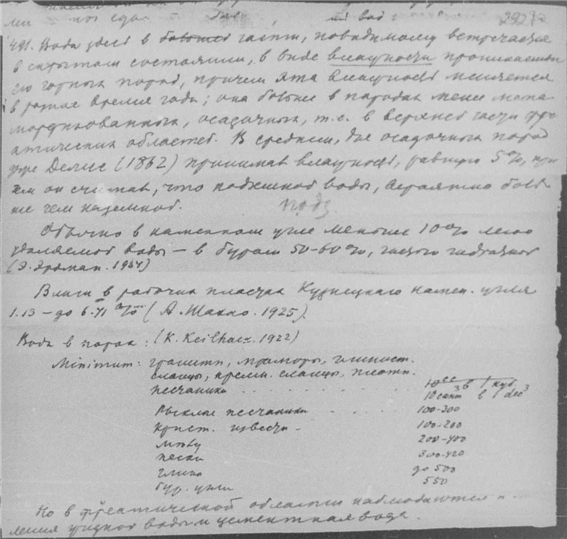 491. Вода здесь в большей части, повидимому встречается
в скрытом состоянии, в виде влажности, проникающей
горных пород, причем эта влажность меняется
в разное время года; она больше в породах менее мета
морфизованных, осадочных, т.е. в верхней части фре
атических областей. В среднем, для осадочных пород
уже Делис (1862) принимал влажность, равную 5%, при
чем он считал, что подземной воды, вероятно боль
ше чем наземной.
Обычно в каменном угле меньше 10% легко
удаляемой воды – в бурых 50-60%,
(Э. Эрдман. 1924)
Влаги в рабочих пластах Кузнецкого камен. угля
1.13 – до 6.41% ( 1925).
Вода в породах: (K. Keilhack. 1922)
Minimum: граниты, мраморы, глинист.
сланцы, кремн. сланцы, плотн.
песчаники 10 в 1
Рыхлые песчаники 100-300
Крист. известн. 100-200
200-400
пески 300-400
глина до 500
бур. угли 550
Но в фреатической области наблюдаются
жидкой воды и цементная вода.